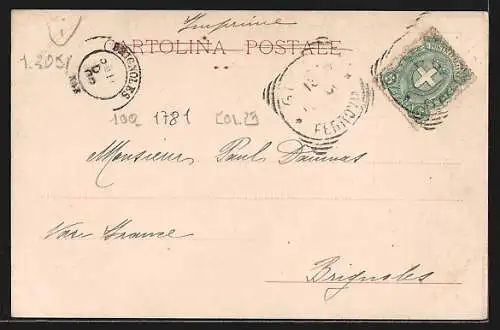 Imprimé
CARTOLINA POSTALE
1.2051
BRIGNOLES
FERROVIA
100 1781 COL.23
Monsieur Paul Daumas
Var France
Brignoles